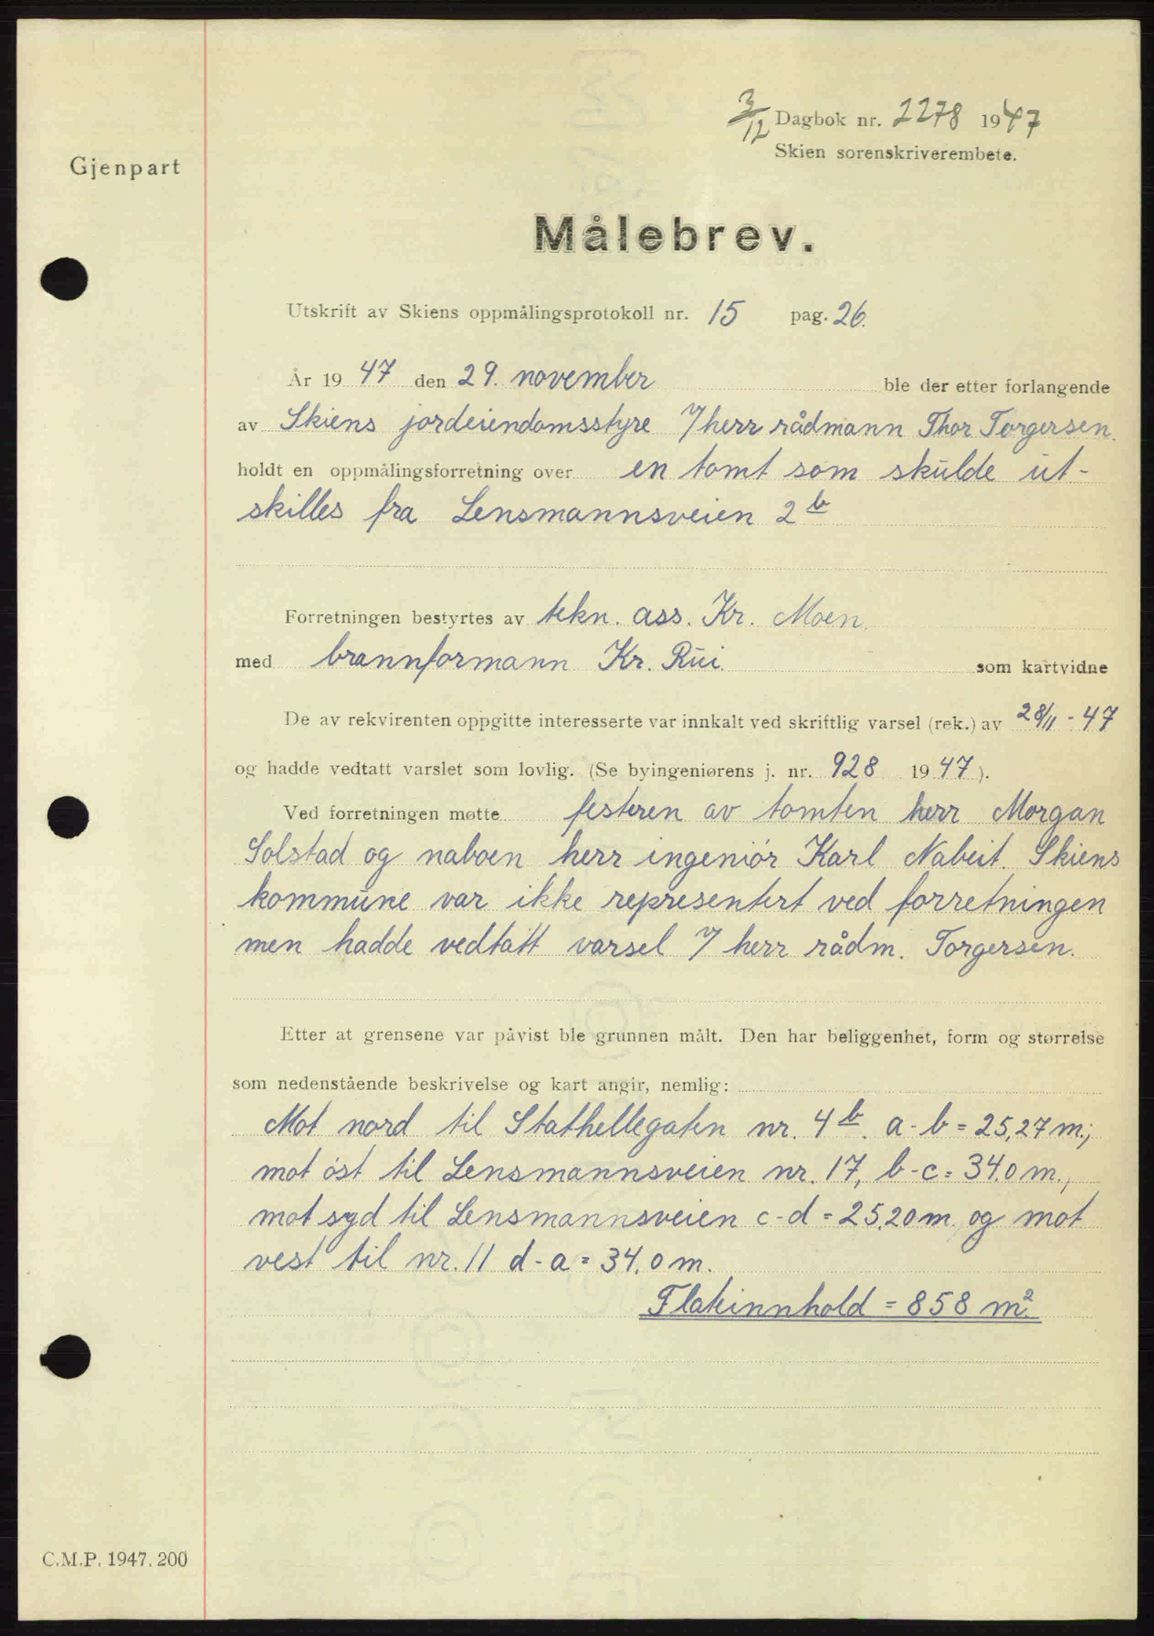 3/12 Dagbok nr. 2278 1947
Skien sorenskriverembete.
Gjenpart
Målebrev.
Utskrift av Skiens oppmålingsprotokoll nr. 15 pag. 26.
År 1947 den 29. november ble der etter forlangende
av Skiens jordeiendomsstyre v/ herr rådmann Thor Torgersen.
holdt en oppmålingsforretning over en tomt som skulde ut-
skilles fra Lensmannsveien 2 b
Forretningen bestyrtes av tekn. ass. Kr. Moen.
med brannformann Kr. Rui. som kartvidne
De av rekvirenten oppgitte interesserte var innkalt ved skriftlig varsel (rek.) av 28/11 - 47
og hadde vedtatt varslet som lovlig. (Se byingeniørens j. nr. 928 1947).
Ved forretningen møtte festeren av tomten herr Morgan
Solstad og naboen herr ingeniör Karl Nabeit. Skiens
kommune var ikke representert ved forretningen
men hadde vedtatt varsel v/ herr rådm. Torgersen.
Etter at grensene var påvist ble grunnen målt. Den har beliggenhet, form og størrelse
som nedenstående beskrivelse og kart angir, nemlig:
Mot nord til Stathellegaten nr. 4 b. a - b = 25,27 m;
mot öst til Lensmannsveien nr. 17, b - c = 34.0 m.,
mot syd til Lensmannsveien c - d = 25,20 m. og mot
vest til nr. 11 d - a = 34,0 m.
Flateinnhold = 858 m².
C.M.P. 1947. 200